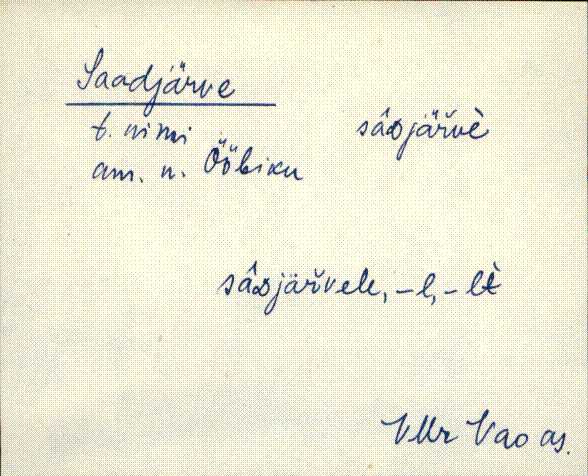 Saadjärve
t. nimi
sâᴅjäřvè
am. n. Ööbiku
sâᴅjäřvele, -l, -lt̀
VMr Vao as.